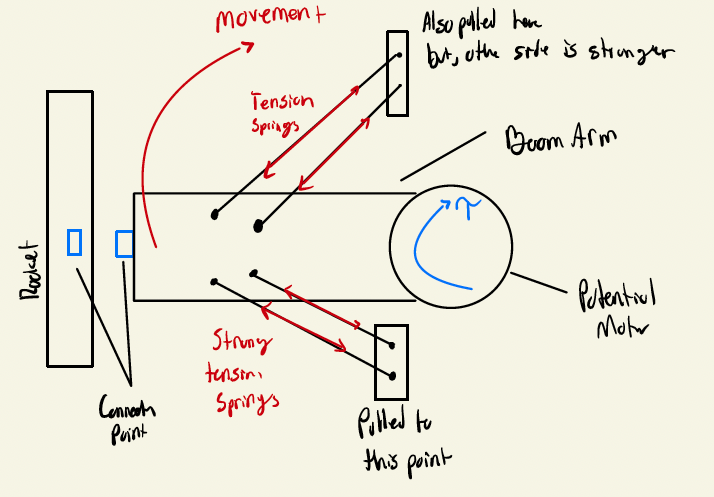 Movement
Also pulled here
but, othe side is stronger
Tension
Springs
Boom Arm
τ
Rocket
Potential
Motor
Strong
tension
Springs
Connectn
Point
Pulled to
this point